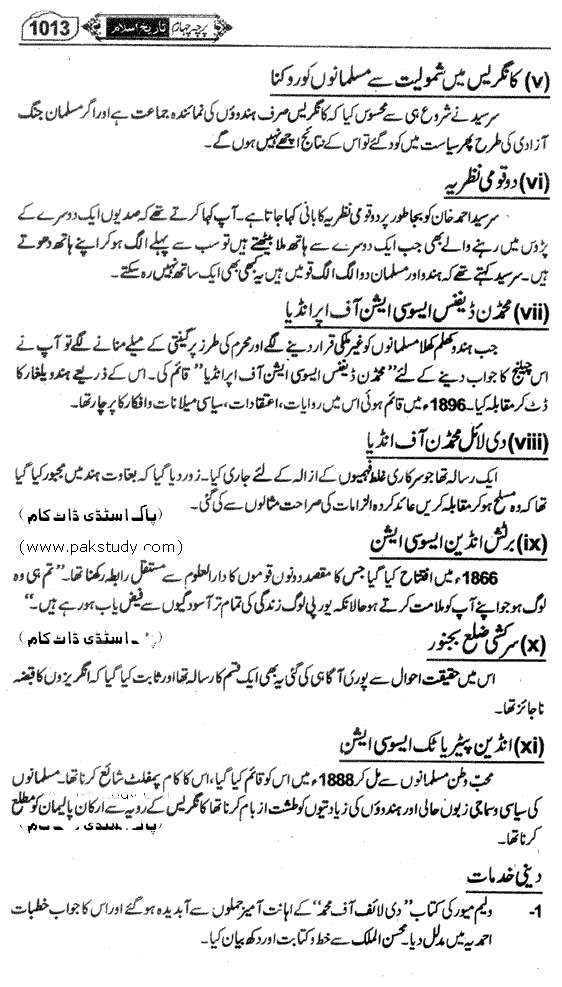 1013 پرچہ چہارم تاریخ اسلام
(v) کانگریس میں شمولیت سے مسلمانوں کو روکنا
سرسید نے شروع ہی سے محسوس کیا کہ کانگریس صرف ہندوؤں کی نمائندہ جماعت ہے اور اگر مسلمان جنگ
آزادی کی طرح پھر سیاست میں کود گئے تو اس کے نتائج اچھے نہیں ہوں گے۔
(vi) دو قومی نظریہ
سرسید احمد خان کو بجا طور پر دو قومی نظریہ کا بانی کہا جاتا ہے۔ آپ کہا کرتے تھے کہ صدیوں ایک دوسرے کے
پڑوس میں رہنے والے بھی جب ایک دوسرے سے ہاتھ ملا بیٹھتے ہیں تو سب سے پہلے الگ ہو کر اپنے ہاتھ دھوتے
ہیں۔ سرسید کہتے تھے کہ ہندو اور مسلمان دو الگ الگ قومیں ہیں یہ کبھی بھی ایک ساتھ نہیں رہ سکتے۔
(vii) محمڈن ڈیفنس ایسوسی ایشن آف اپر انڈیا
جب ہندو کھلم کھلا مسلمانوں کو غیر ملکی قرار دینے لگے اور محرم کی طرز پر گنپتی کے میلے منانے لگے تو آپ نے
اس چیلنج کا جواب دینے کے لئے "محمڈن ڈیفنس ایسوسی ایشن آف اپر انڈیا" قائم کی۔ اس کے ذریعے ہندو یلغار کا
ڈٹ کر مقابلہ کیا۔ 1896ء میں قائم ہوئی اس میں روایات، اعتقادات، سیاسی میلانات و افکار کا پرچار تھا۔
(viii) دی لائل محمڈن آف انڈیا
ایک رسالہ تھا جو سرکاری غلط فہمیوں کے ازالہ کے لئے جاری کیا۔ زور دیا گیا کہ بغاوت ہند میں مجبور کیا گیا
تھا کہ وہ مسلح ہو کر مقابلہ کریں عائد کردہ الزامات کی صراحت مثالوں سے کی گئی۔
(پاک اسٹڈی ڈاٹ کام)
(www.pakstudy.com)
(ix) برٹش انڈین ایسوسی ایشن
1866ء میں افتتاح کیا گیا جس کا مقصد دونوں قوموں کا دارالعلوم سے مستقل رابطہ رکھنا تھا۔ "تم ہی وہ
لوگ ہو جو اپنے آپ کو ملامت کرتے ہو حالانکہ یورپی لوگ زندگی کی تمام تر آسودگیوں سے فیض یاب ہو رہے ہیں۔"
(x) سرکشی ضلع بجنور
اسٹڈی ڈاٹ کام)
اس میں حقیقت احوال سے پوری آگاہی کی گئی یہ بھی ایک قسم کا رسالہ تھا اور ثابت کیا گیا کہ انگریزوں کا قبضہ
ناجائز تھا۔
(xi) انڈین پیٹریاٹک ایسوسی ایشن
محب وطن مسلمانوں سے مل کر 1888ء میں اس کو قائم کیا گیا، اس کا کام پمفلٹ شائع کرنا تھا۔ مسلمانوں
کی سیاسی و سماجی زبوں حالی اور ہندوؤں کی زیادتیوں کو طشت از بام کرنا تھا کانگریس کے رویہ سے ارکان پارلیمان کو مطلع
کرنا تھا۔
دینی خدمات
1- ولیم میور کی کتاب "دی لائف آف محمد" کے اہانت آمیز جملوں سے آبدیدہ ہو گئے اور اس کا جواب خطبات
احمدیہ میں مدلل دیا۔ محسن الملک سے خط و کتابت اور دکھ بیان کیا۔